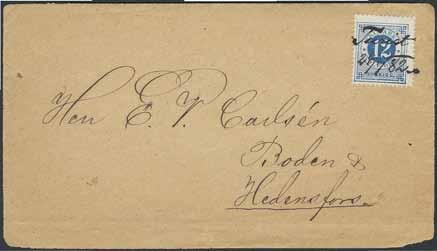 12
29/7 82.
Herr E. P. Carlsén
Boden &
Hedensfors.